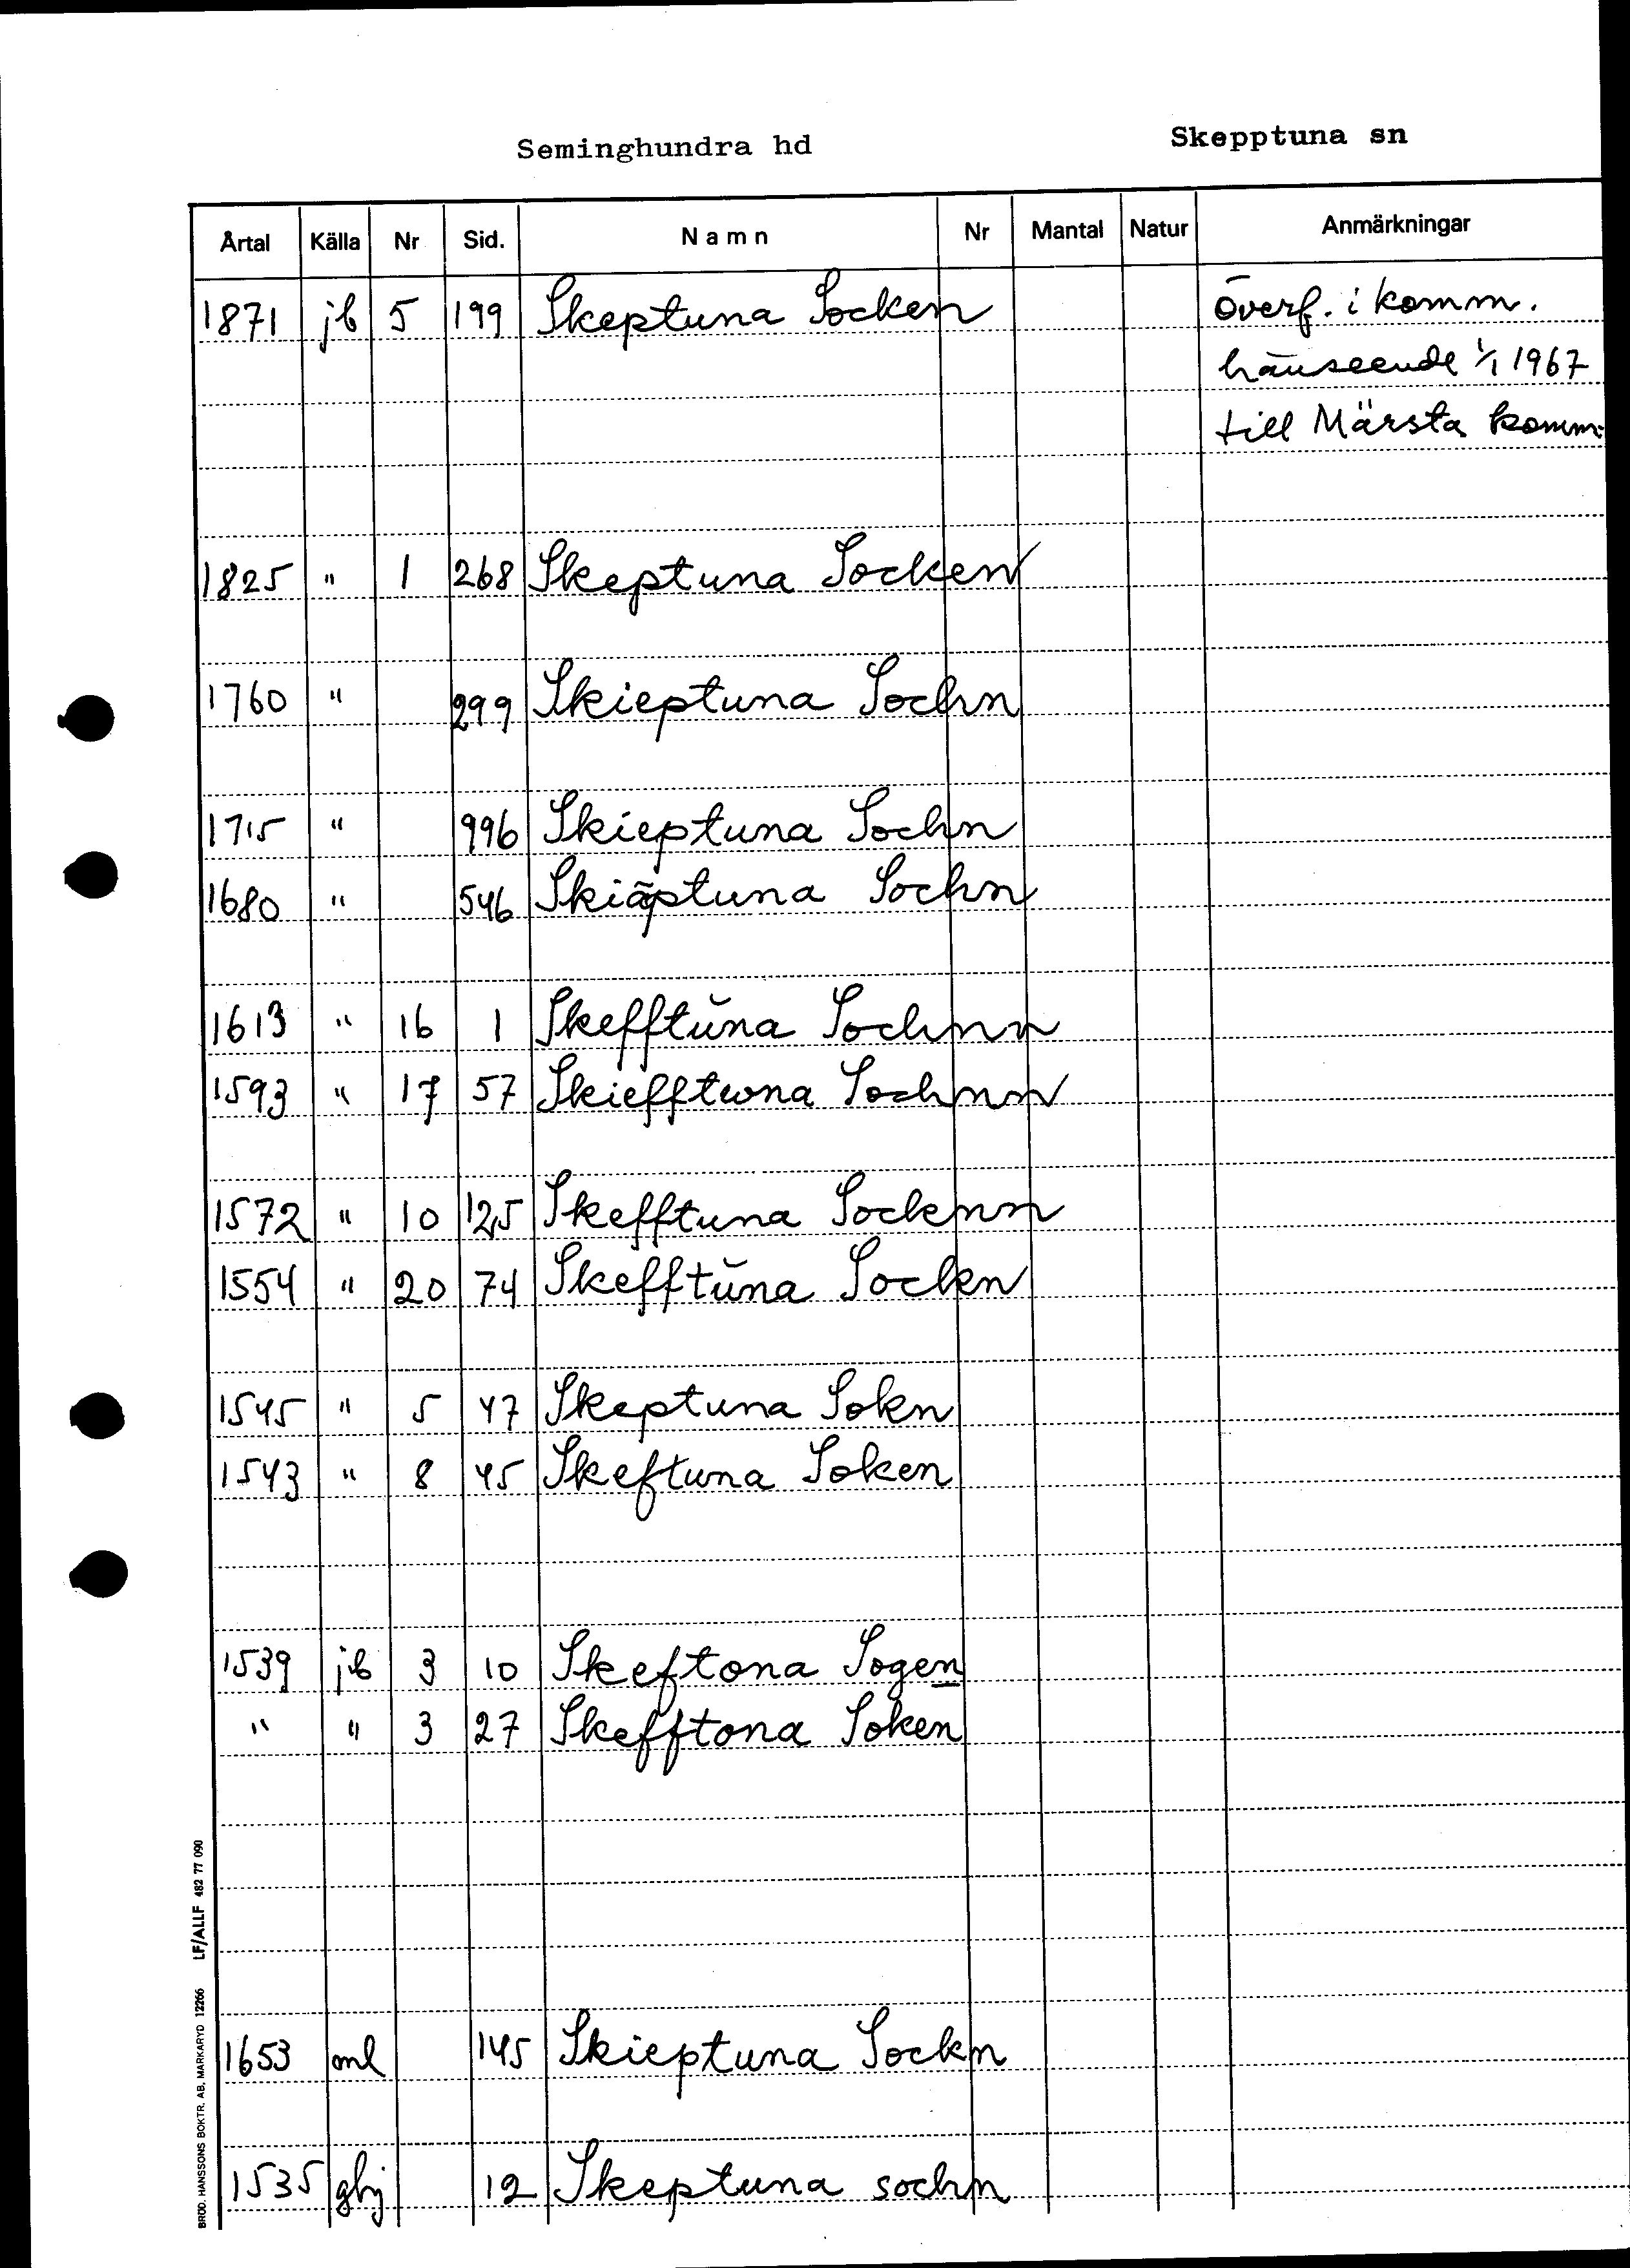 Seminghundra hd Skepptuna sn
Årtal Källa Nr Sid. Namn Nr Mantal Natur Anmärkningar
1871 jb 5 199 Skeptuna Socken överf. i komm.
hänseende 1/1 1967
till Märsta komm.
1825 " 1 268 Skeptuna Socken
1760 " 299 Skieptuna Sochn
1715 " 996 Skieptuna Sochn
1680 " 546 Skiäptuna Sochn
1613 " 16 1 Skefftŭna Sochnn
1593 " 17 57 Skiefftwna Sochnn
1572 " 10 125 Skefftuna Socknn
1554 " 20 74 Skefftŭna Sockn
1545 " 5 47 Skeptuna Sokn
1543 " 8 45 Skeftuna Soken
1539 jb 3 10 Skeftona Sogen
" " 3 27 Skefftona Soken
1653 ml 145 Skieptuna Sockn
1535 gbj 12 Skeptuna sochn
BRÖD. HANSSONS BOKTR. AB, MARKARYD 12266 LF/ALLF 482 77 090